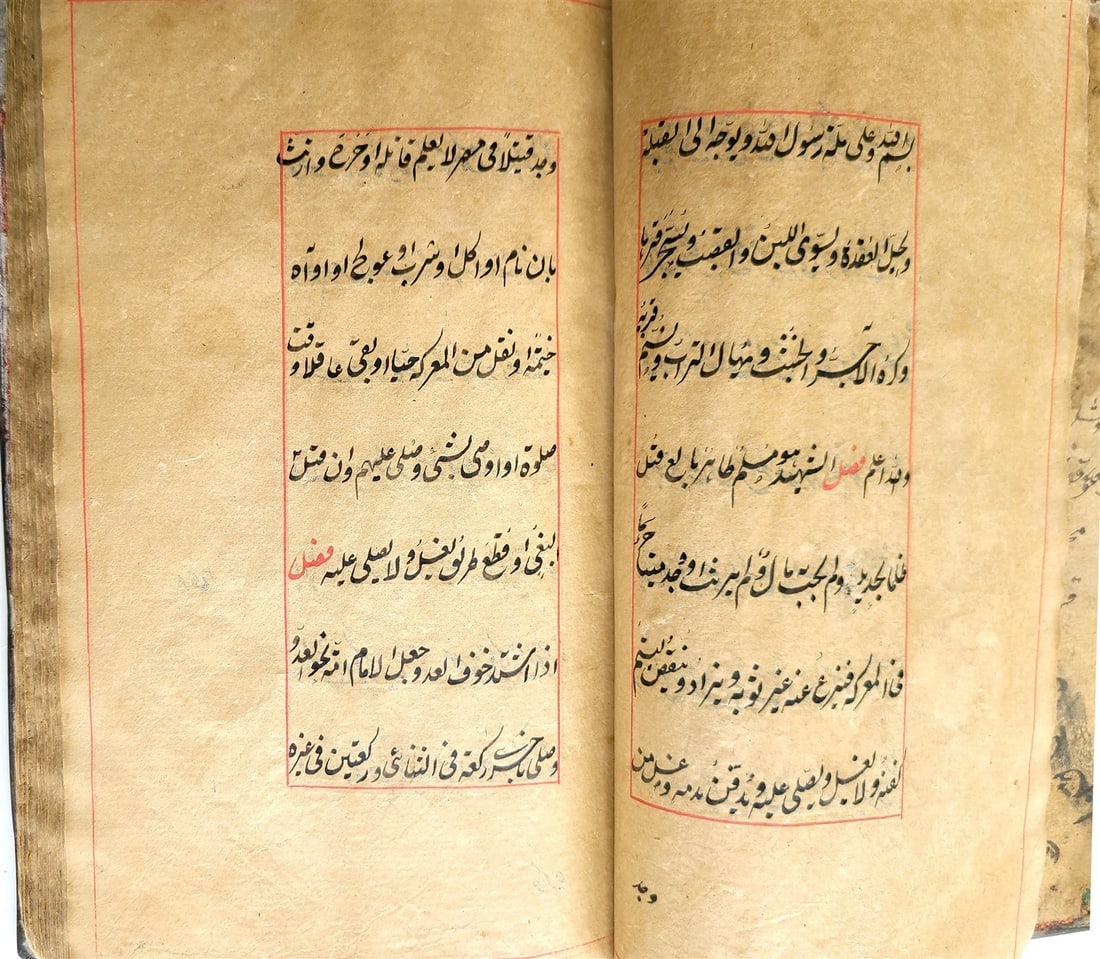 بسم الله وعلى ملة رسول الله ويوجه الى القبلة
ويحل العقدة ويسوى اللبن والقصب ويسجى قبرها
وكره الآجر والخشب ويهال التراب ويسنم قبره
والله اعلم فصل الشهيد هو مسلم طاهر بالغ قتل
ظلما بحديد ولم يجب به مال ولم يرتث او وجد ميتا جريحا
فى المعركة فينزع عنه غير ثوبه ويزاد وينقص ليتم
كفنه ولا يغسل ويصلى عليه ويدفن بدمه وغسل من
وجد
وجد قتيلاً فى مصر لا يعلم قاتله او جُرحَ وارتث
بان نام او اكل او شرب او عولج او اواه
خيمة او نقل من المعركة حيا او بقى عاقلا وقت
صلوة او اوصى بشئ وصلى عليهم وان قتل
لبغى او قطع طريق يغسل ولا يصلى عليه فصل
اذا اشتد خوف العدو جعل الامام امّة نحو العدو
وصلى باخرى ركعة فى الثنائى وركعتين فى غيره